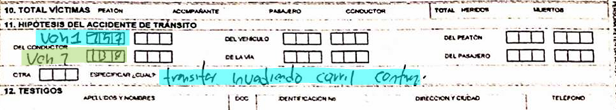 10. TOTAL VÍCTIMAS PEATÓN ACOMPAÑANTE PASAJERO CONDUCTOR TOTAL HERIDOS MUERTOS
11. HIPÓTESIS DEL ACCIDENTE DE TRÁNSITO
Veh 1 157 DEL VEHICULO DEL PEATÓN
DEL CONDUCTOR
Veh 2 DE LA VÍA DEL PASAJERO
OTRA ESPECIFICAR ¿CUAL? transitar invadiendo carril contra.
12. TESTIGOS
APELLIDOS Y NOMBRES DOC IDENTIFICACIÓN No DIRECCION Y CIUDAD TELEFONO